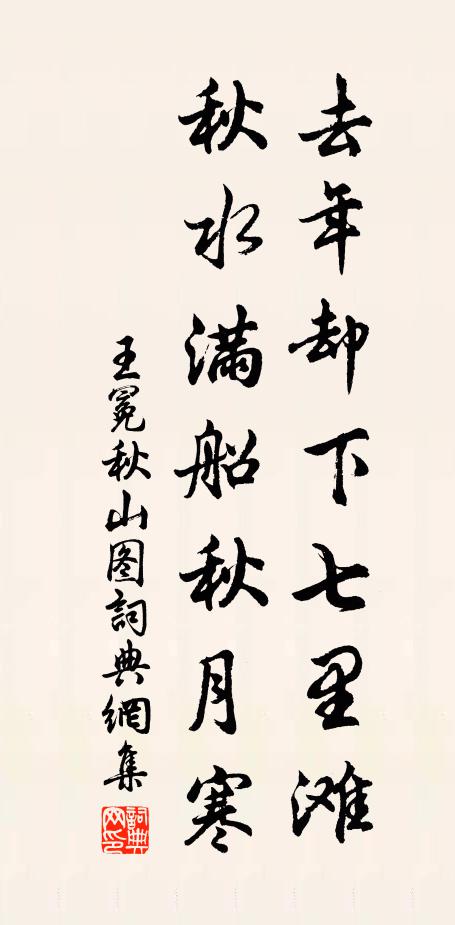 去年却下七里滩
秋水满船秋月寒
王冕秋山图詞典網集
詞典網印